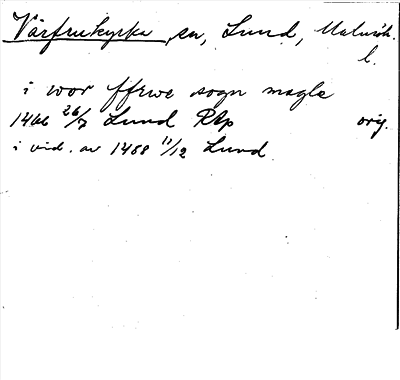 Vårfrukyrka, sn, Lund, Malmöh.
l.
i wor ffrwe sogn magle
1406 26/7 Lund RAp orig.
i vid. av 1488 11/12 Lund